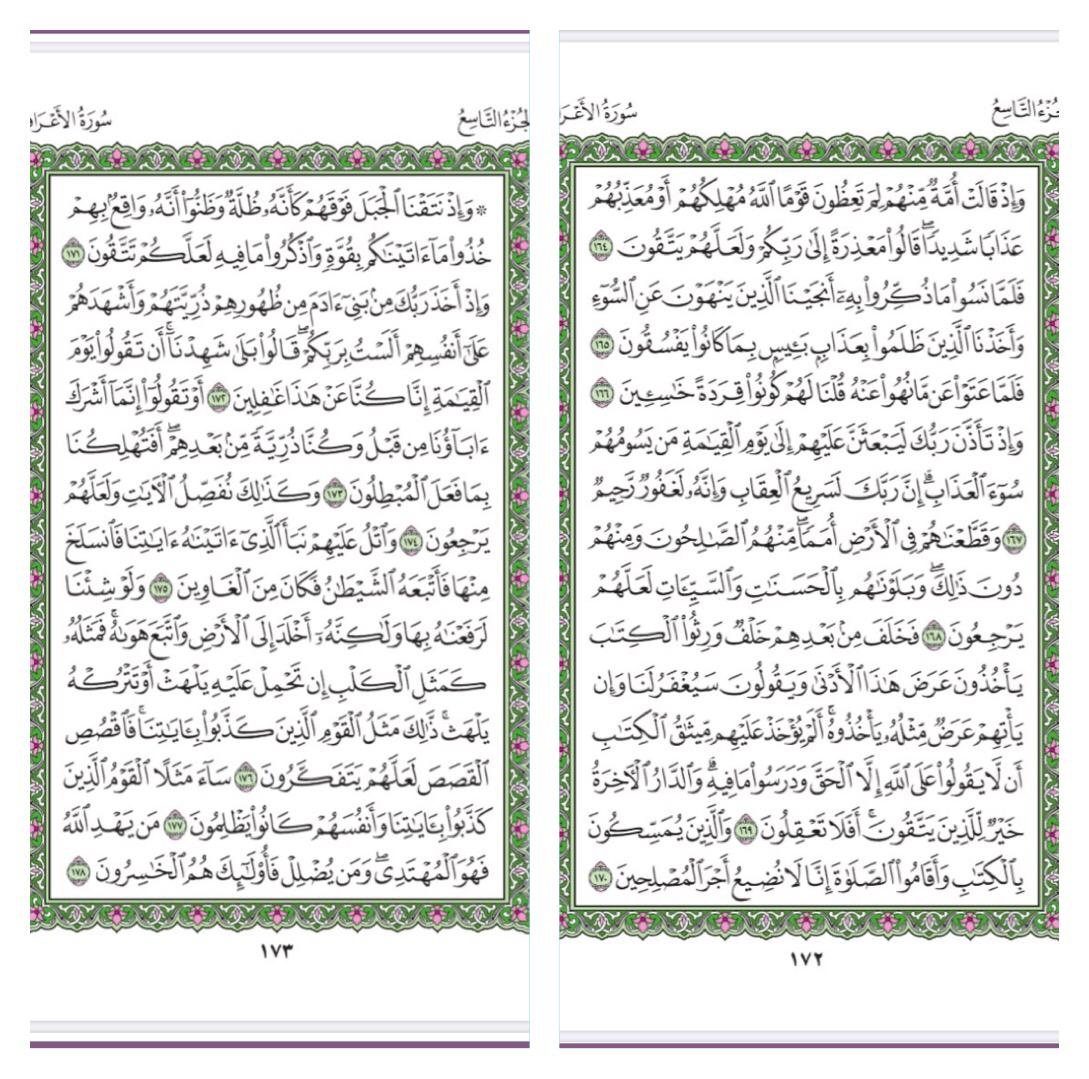 الجزء التاسع
سورة الأعرا
وَإِذْ قَالَتْ أُمَّةٌ مِّنْهُمْ لِمَ تَعِظُونَ قَوْمًا ٱللَّهُ مُهْلِكُهُمْ أَوْ مُعَذِّبُهُمْ
عَذَابًا شَدِيدًا ۖ قَالُوا۟ مَعْذِرَةً إِلَىٰ رَبِّكُمْ وَلَعَلَّهُمْ يَتَّقُونَ ١٦٤
فَلَمَّا نَسُوا۟ مَا ذُكِّرُوا۟ بِهِۦٓ أَنجَيْنَا ٱلَّذِينَ يَنْهَوْنَ عَنِ ٱلسُّوٓءِ
وَأَخَذْنَا ٱلَّذِينَ ظَلَمُوا۟ بِعَذَابٍۭ بَـِٔيسٍۭ بِمَا كَانُوا۟ يَفْسُقُونَ ١٦٥
فَلَمَّا عَتَوْا۟ عَن مَّا نُهُوا۟ عَنْهُ قُلْنَا لَهُمْ كُونُوا۟ قِرَدَةً خَـٰسِـِٔينَ ١٦٦
وَإِذْ تَأَذَّنَ رَبُّكَ لَيَبْعَثَنَّ عَلَيْهِمْ إِلَىٰ يَوْمِ ٱلْقِيَـٰمَةِ مَن يَسُومُهُمْ
سُوٓءَ ٱلْعَذَابِ ۗ إِنَّ رَبَّكَ لَسَرِيعُ ٱلْعِقَابِ وَإِنَّهُۥ لَغَفُورٌ رَّحِيمٌ
١٦٧ وَقَطَّعْنَـٰهُمْ فِى ٱلْأَرْضِ أُمَمًا ۖ مِّنْهُمُ ٱلصَّـٰلِحُونَ وَمِنْهُمْ
دُونَ ذَٰلِكَ ۖ وَبَلَوْنَـٰهُم بِٱلْحَسَنَـٰتِ وَٱلسَّيِّـَٔاتِ لَعَلَّهُمْ
يَرْجِعُونَ ١٦٨ فَخَلَفَ مِنۢ بَعْدِهِمْ خَلْفٌ وَرِثُوا۟ ٱلْكِتَـٰبَ
يَأْخُذُونَ عَرَضَ هَـٰذَا ٱلْأَدْنَىٰ وَيَقُولُونَ سَيُغْفَرُ لَنَا وَإِن
يَأْتِهِمْ عَرَضٌ مِّثْلُهُۥ يَأْخُذُوهُ ۚ أَلَمْ يُؤْخَذْ عَلَيْهِم مِّيثَـٰقُ ٱلْكِتَـٰبِ
أَن لَّا يَقُولُوا۟ عَلَى ٱللَّهِ إِلَّا ٱلْحَقَّ وَدَرَسُوا۟ مَا فِيهِ ۗ وَٱلدَّارُ ٱلْـَٔاخِرَةُ
خَيْرٌ لِّلَّذِينَ يَتَّقُونَ ۗ أَفَلَا تَعْقِلُونَ ١٦٩ وَٱلَّذِينَ يُمَسِّكُونَ
بِٱلْكِتَـٰبِ وَأَقَامُوا۟ ٱلصَّلَوٰةَ إِنَّا لَا نُضِيعُ أَجْرَ ٱلْمُصْلِحِينَ ١٧٠
١٧٢
الجزء التاسع
سورة الأعراف
۞ وَإِذْ نَتَقْنَا ٱلْجَبَلَ فَوْقَهُمْ كَأَنَّهُۥ ظُلَّةٌ وَظَنُّوٓا۟ أَنَّهُۥ وَاقِعٌۢ بِهِمْ
خُذُوا۟ مَآ ءَاتَيْنَـٰكُم بِقُوَّةٍ وَٱذْكُرُوا۟ مَا فِيهِ لَعَلَّكُمْ تَتَّقُونَ ١٧١
وَإِذْ أَخَذَ رَبُّكَ مِنۢ بَنِىٓ ءَادَمَ مِن ظُهُورِهِمْ ذُرِّيَّتَهُمْ وَأَشْهَدَهُمْ
عَلَىٰٓ أَنفُسِهِمْ أَلَسْتُ بِرَبِّكُمْ ۖ قَالُوا۟ بَلَىٰ ۛ شَهِدْنَآ ۛ أَن تَقُولُوا۟ يَوْمَ
ٱلْقِيَـٰمَةِ إِنَّا كُنَّا عَنْ هَـٰذَا غَـٰفِلِينَ ١٧٢ أَوْ تَقُولُوٓا۟ إِنَّمَآ أَشْرَكَ
ءَابَآؤُنَا مِن قَبْلُ وَكُنَّا ذُرِّيَّةً مِّنۢ بَعْدِهِمْ ۖ أَفَتُهْلِكُنَا
بِمَا فَعَلَ ٱلْمُبْطِلُونَ ١٧٣ وَكَذَٰلِكَ نُفَصِّلُ ٱلْـَٔايَـٰتِ وَلَعَلَّهُمْ
يَرْجِعُونَ ١٧٤ وَٱتْلُ عَلَيْهِمْ نَبَأَ ٱلَّذِىٓ ءَاتَيْنَـٰهُ ءَايَـٰتِنَا فَٱنسَلَخَ
مِنْهَا فَأَتْبَعَهُ ٱلشَّيْطَـٰنُ فَكَانَ مِنَ ٱلْغَاوِينَ ١٧٥ وَلَوْ شِئْنَا
لَرَفَعْنَـٰهُ بِهَا وَلَـٰكِنَّهُۥٓ أَخْلَدَ إِلَى ٱلْأَرْضِ وَٱتَّبَعَ هَوَىٰهُ ۚ فَمَثَلُهُۥ
كَمَثَلِ ٱلْكَلْبِ إِن تَحْمِلْ عَلَيْهِ يَلْهَثْ أَوْ تَتْرُكْهُ
يَلْهَث ۚ ذَّٰلِكَ مَثَلُ ٱلْقَوْمِ ٱلَّذِينَ كَذَّبُوا۟ بِـَٔايَـٰتِنَا ۚ فَٱقْصُصِ
ٱلْقَصَصَ لَعَلَّهُمْ يَتَفَكَّرُونَ ١٧٦ سَآءَ مَثَلًا ٱلْقَوْمُ ٱلَّذِينَ
كَذَّبُوا۟ بِـَٔايَـٰتِنَا وَأَنفُسَهُمْ كَانُوا۟ يَظْلِمُونَ ١٧٧ مَن يَهْدِ ٱللَّهُ
فَهُوَ ٱلْمُهْتَدِى ۖ وَمَن يُضْلِلْ فَأُو۟لَـٰٓئِكَ هُمُ ٱلْخَـٰسِرُونَ ١٧٨
١٧٣